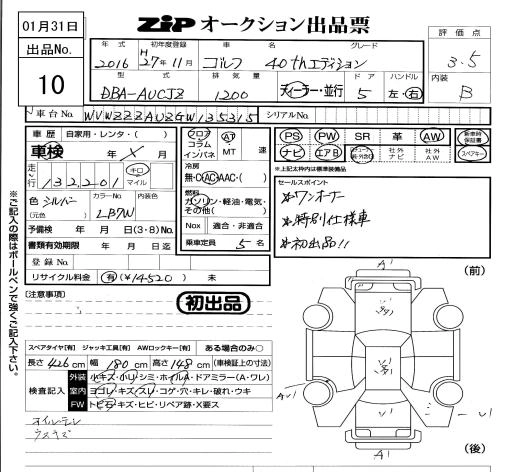 01月31日
ZIP オークション出品票
出品No.
10
評価点
3.5
内装
B
年式
初年度登録
車名
グレード
2016
H 27年11月
ゴルフ 40thエディション
型式
排気量
ドア
ハンドル
DBA-AUCJZ
1200
ディーラー・並行
5
左・右
車台No. WVWZZZAUZGW135315
シリアルNo.
車歴 自家用・レンタ・( )
車検 年 X 月
走行 132,201 キロ マイル
色 シルバー
(元色)
カラーNo. LB7W
内装色
予備検 年 月 日(3・8)No.
書類有効期限 年 月 日迄
登録No.
リサイクル料金 有(¥14520) 未
フロア コラム インパネ
AT MT 速
冷房
無・C・AC・AAC・( )
燃料
ガソリン・軽油・電気・その他( )
Nox 適合・非適合
乗車定員 5名
PS PW SR 革 AW 新車時保証書
ナビ エアB 社外ナビ 社外AW スペアキー
*上記太枠内は標準装備品
セールスポイント
*ワンオーナー
*特別仕様車
*初出品!!
※ご記入の際はボールペンで強くご記入下さい。
[注意事項]
初出品
スペアタイヤ[有] ジャッキ工具[有] AWロックキー[有] ある場合のみ○
長さ 426cm 幅 180cm 高さ 148cm (車検証上の寸法)
検査記入
外装 小キズ・小リ・シミ・ホイルA・ドアミラー(A・ワレ)
室内 ヨゴレ・キズ・スレ・コゲ・穴・キレ・破れ・ウキ
FW トビ石・キズ・ヒビ・リペア跡・X要ス
オイルモレ
ウスキズ
(前)
A1
A1
U1
U1
U1
A1
(後)